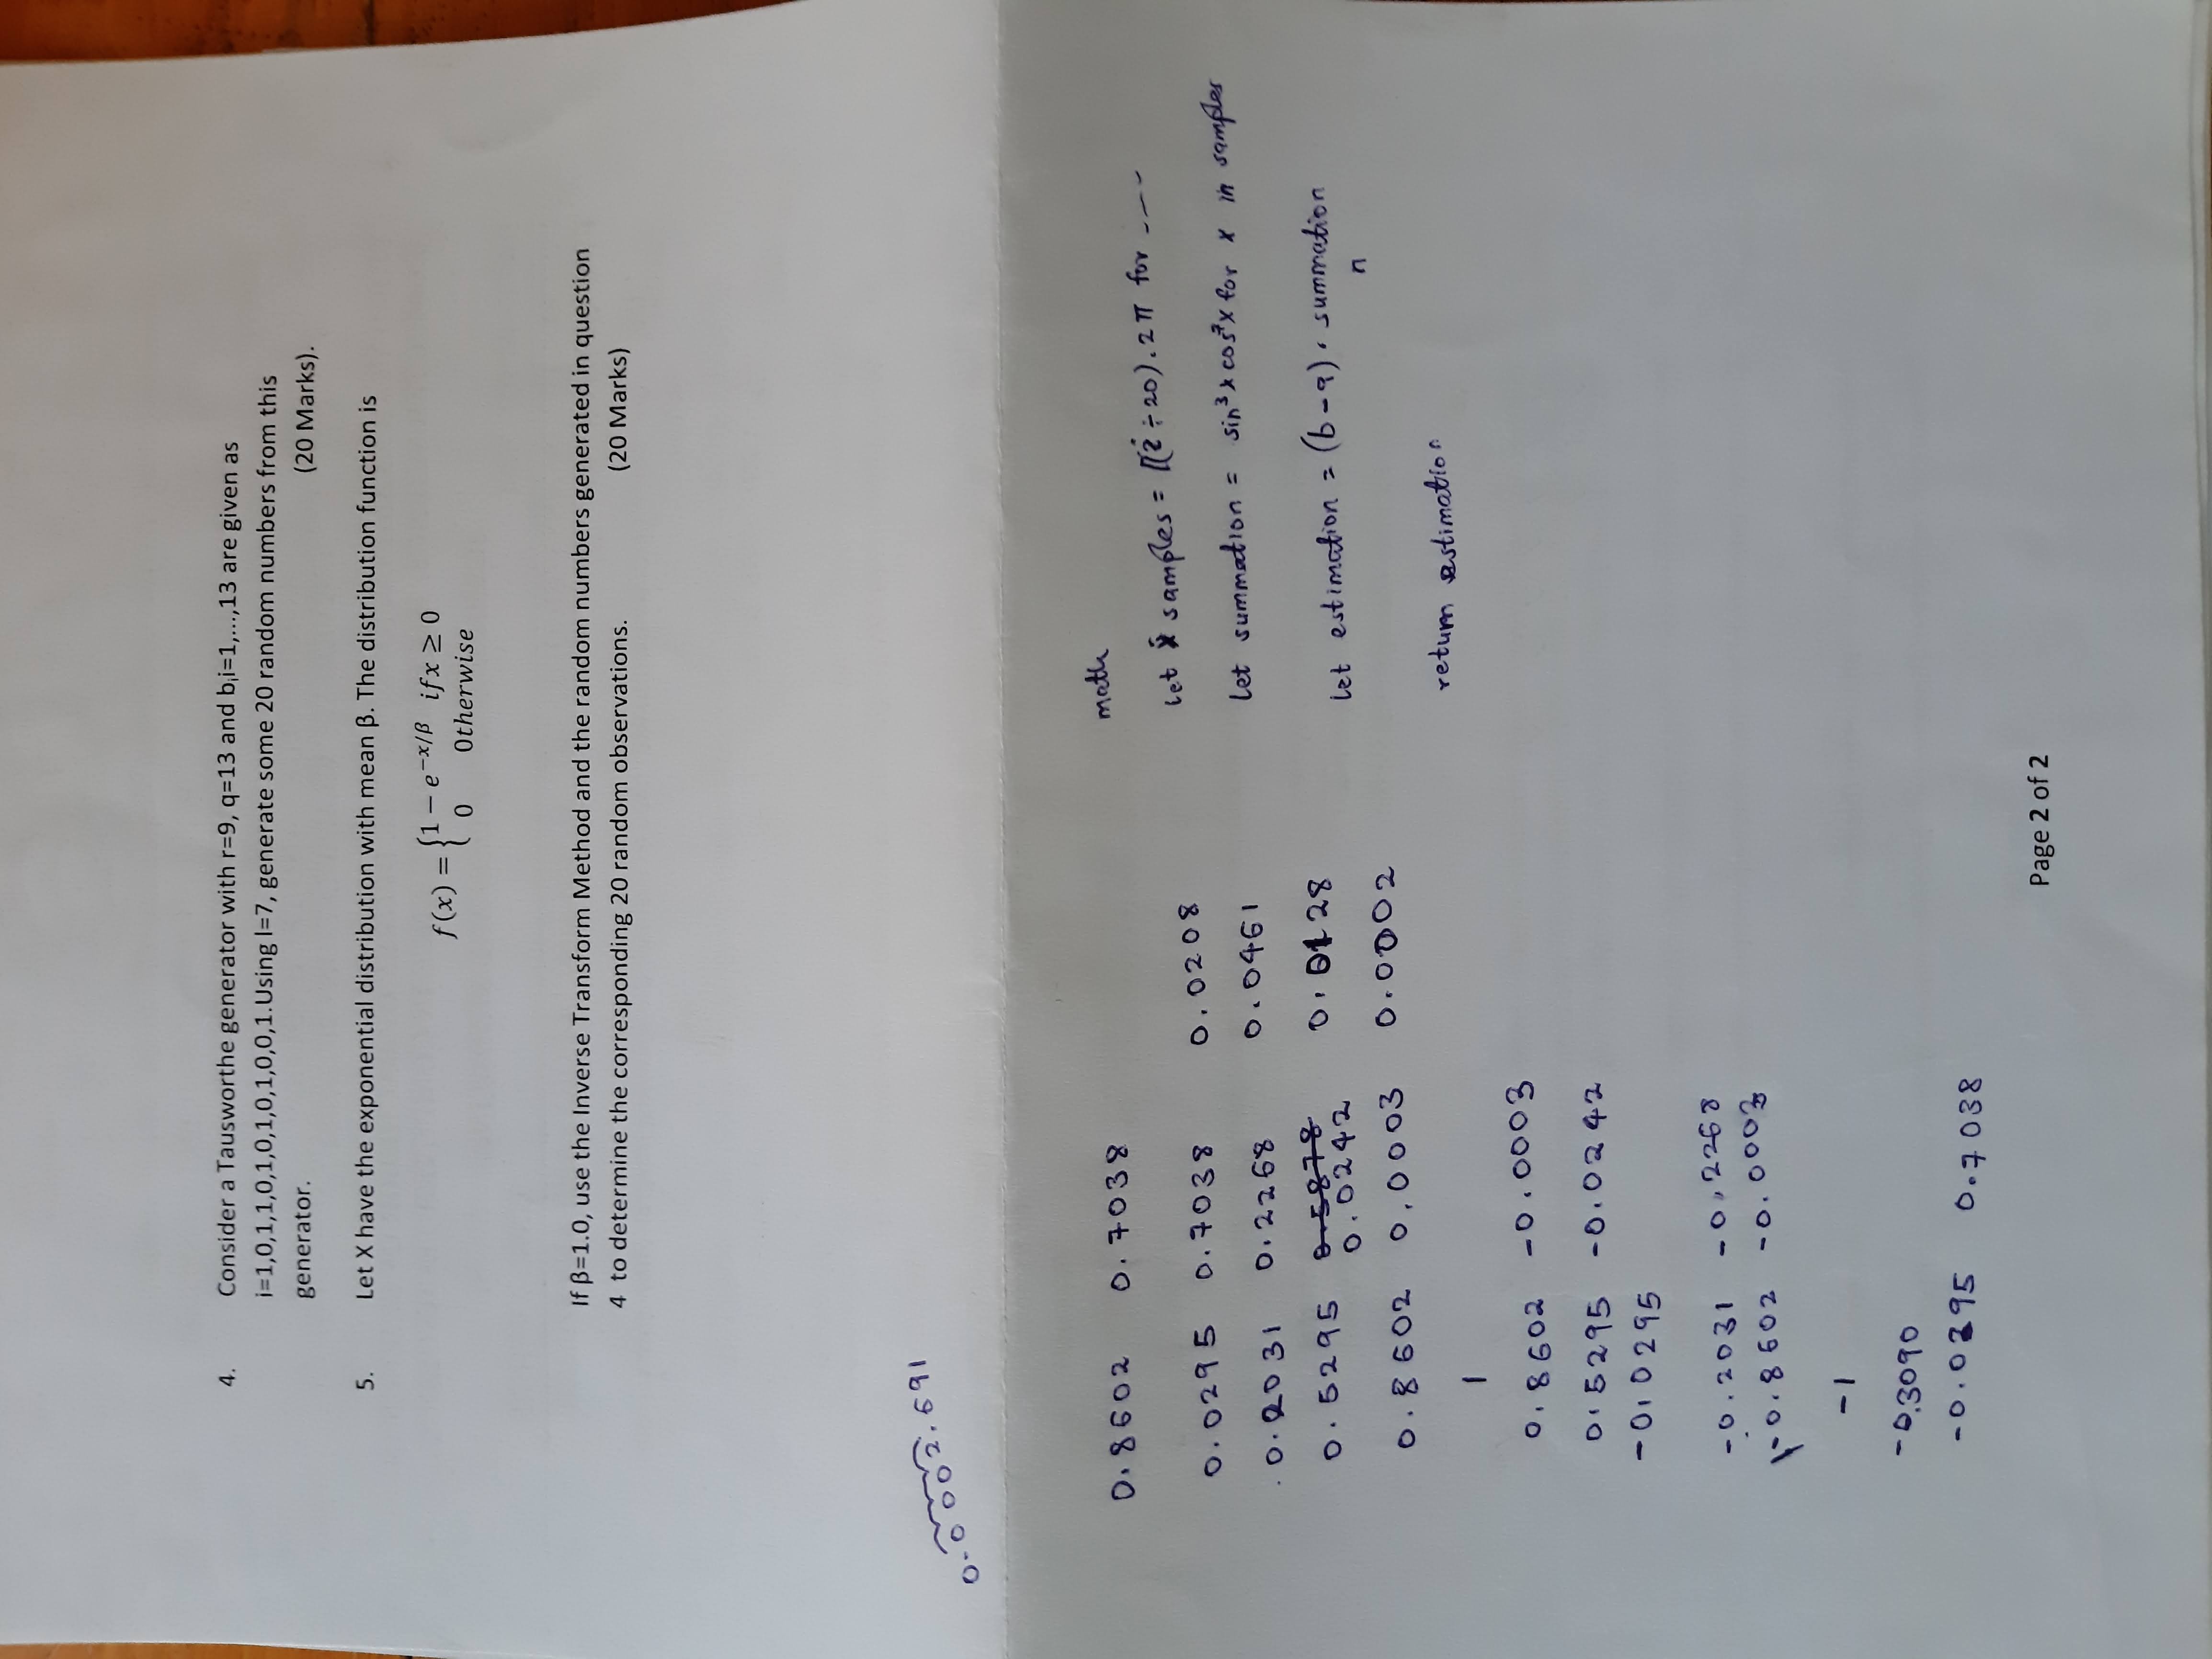 4. Consider a Tausworthe generator with r=9, q=13 and bᵢi=1,...,13 are given as
i=1,0,1,1,0,1,0,1,0,1,0,0,1.Using l=7, generate some 20 random numbers from this
generator. (20 Marks).
5. Let X have the exponential distribution with mean β. The distribution function is
f(x) = {1 − e^{−x/β} ifx ≥ 0
0 Otherwise
If β=1.0, use the Inverse Transform Method and the random numbers generated in question
4 to determine the corresponding 20 random observations. (20 Marks)
0.0002.691
0.8602 0.7038
0.0295 0.7038 0.0208
0.2031 0.2268 0.0461
0.5295 0.5878 0.0128
0.0242
0.8602 0.0003 0.0002
1
0.8602 -0.0003
0.5295 -0.0242
-0.0295
-0.2031 -0.2268
-0.8602 -0.0003
-1
-0.3090
-0.0295 0.7038
math
let samples = [(i ÷ 20).2π for ----
let summation = sin³x cos⁷x for x in samples
let estimation = (b-a). summation
n
return estimation
Page 2 of 2